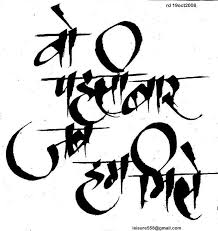 rd 19oct2008
वो
पहली बार
जब
हम मिले
leisure558@gmail.com